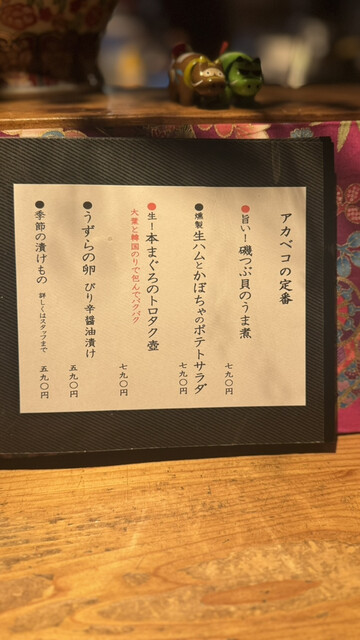 アカベコの定番
●旨い！磯つぶ貝のうま煮 七九〇円
●燻製生ハムとかぼちゃのポテトサラダ 七九〇円
●生！本まぐろのトロタク壺 七九〇円
大葉と韓国のりで包んでパクパク
●うずらの卵 ぴり辛醤油漬け 五九〇円
●季節の漬けもの 詳しくはスタッフまで 五九〇円